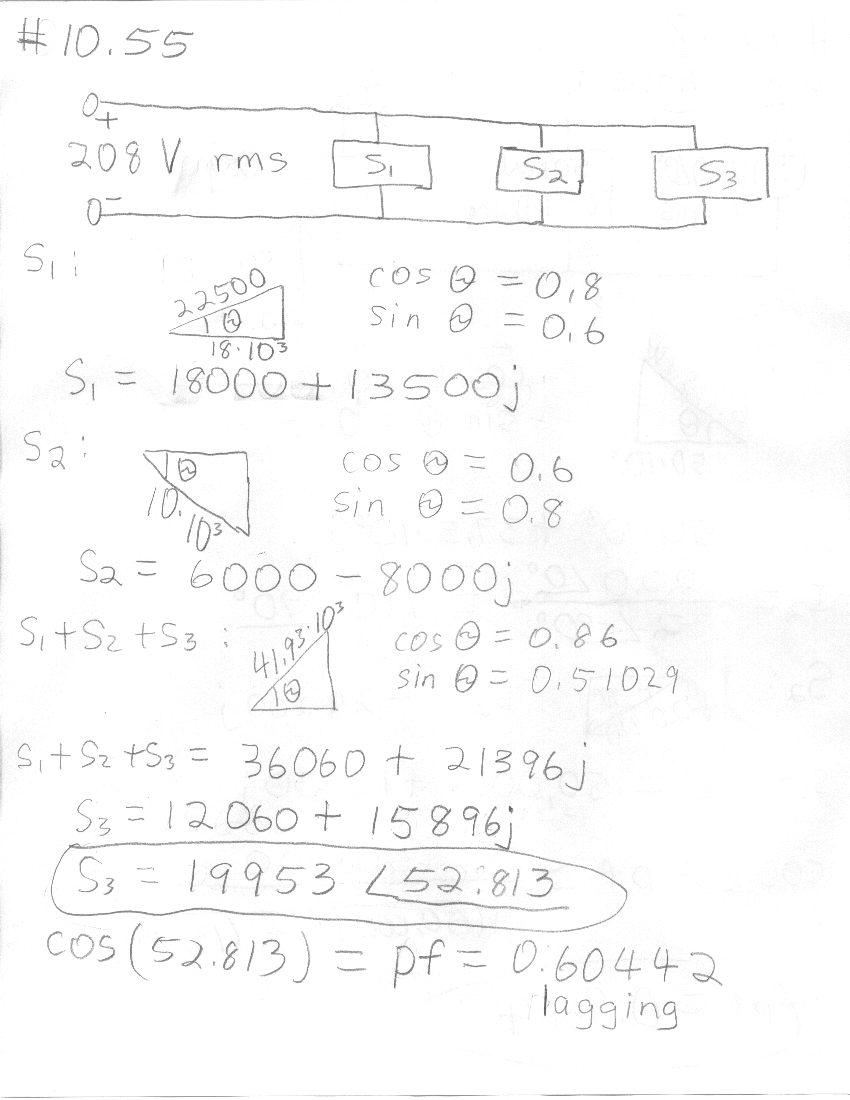 #10.55
+
208 V rms
S1
S2
S3
-
S1:
22500
θ
18·10³
cos θ = 0.8
sin θ = 0.6
S1 = 18000 + 13500j
S2:
θ
10·10³
cos θ = 0.6
sin θ = 0.8
S2 = 6000 - 8000j
S1+S2+S3:
41.93·10³
θ
cos θ = 0.86
sin θ = 0.51029
S1+S2+S3 = 36060 + 21396j
S3 = 12060 + 15896j
S3 = 19953 ∠52.813
cos(52.813) = pf = 0.60442
lagging